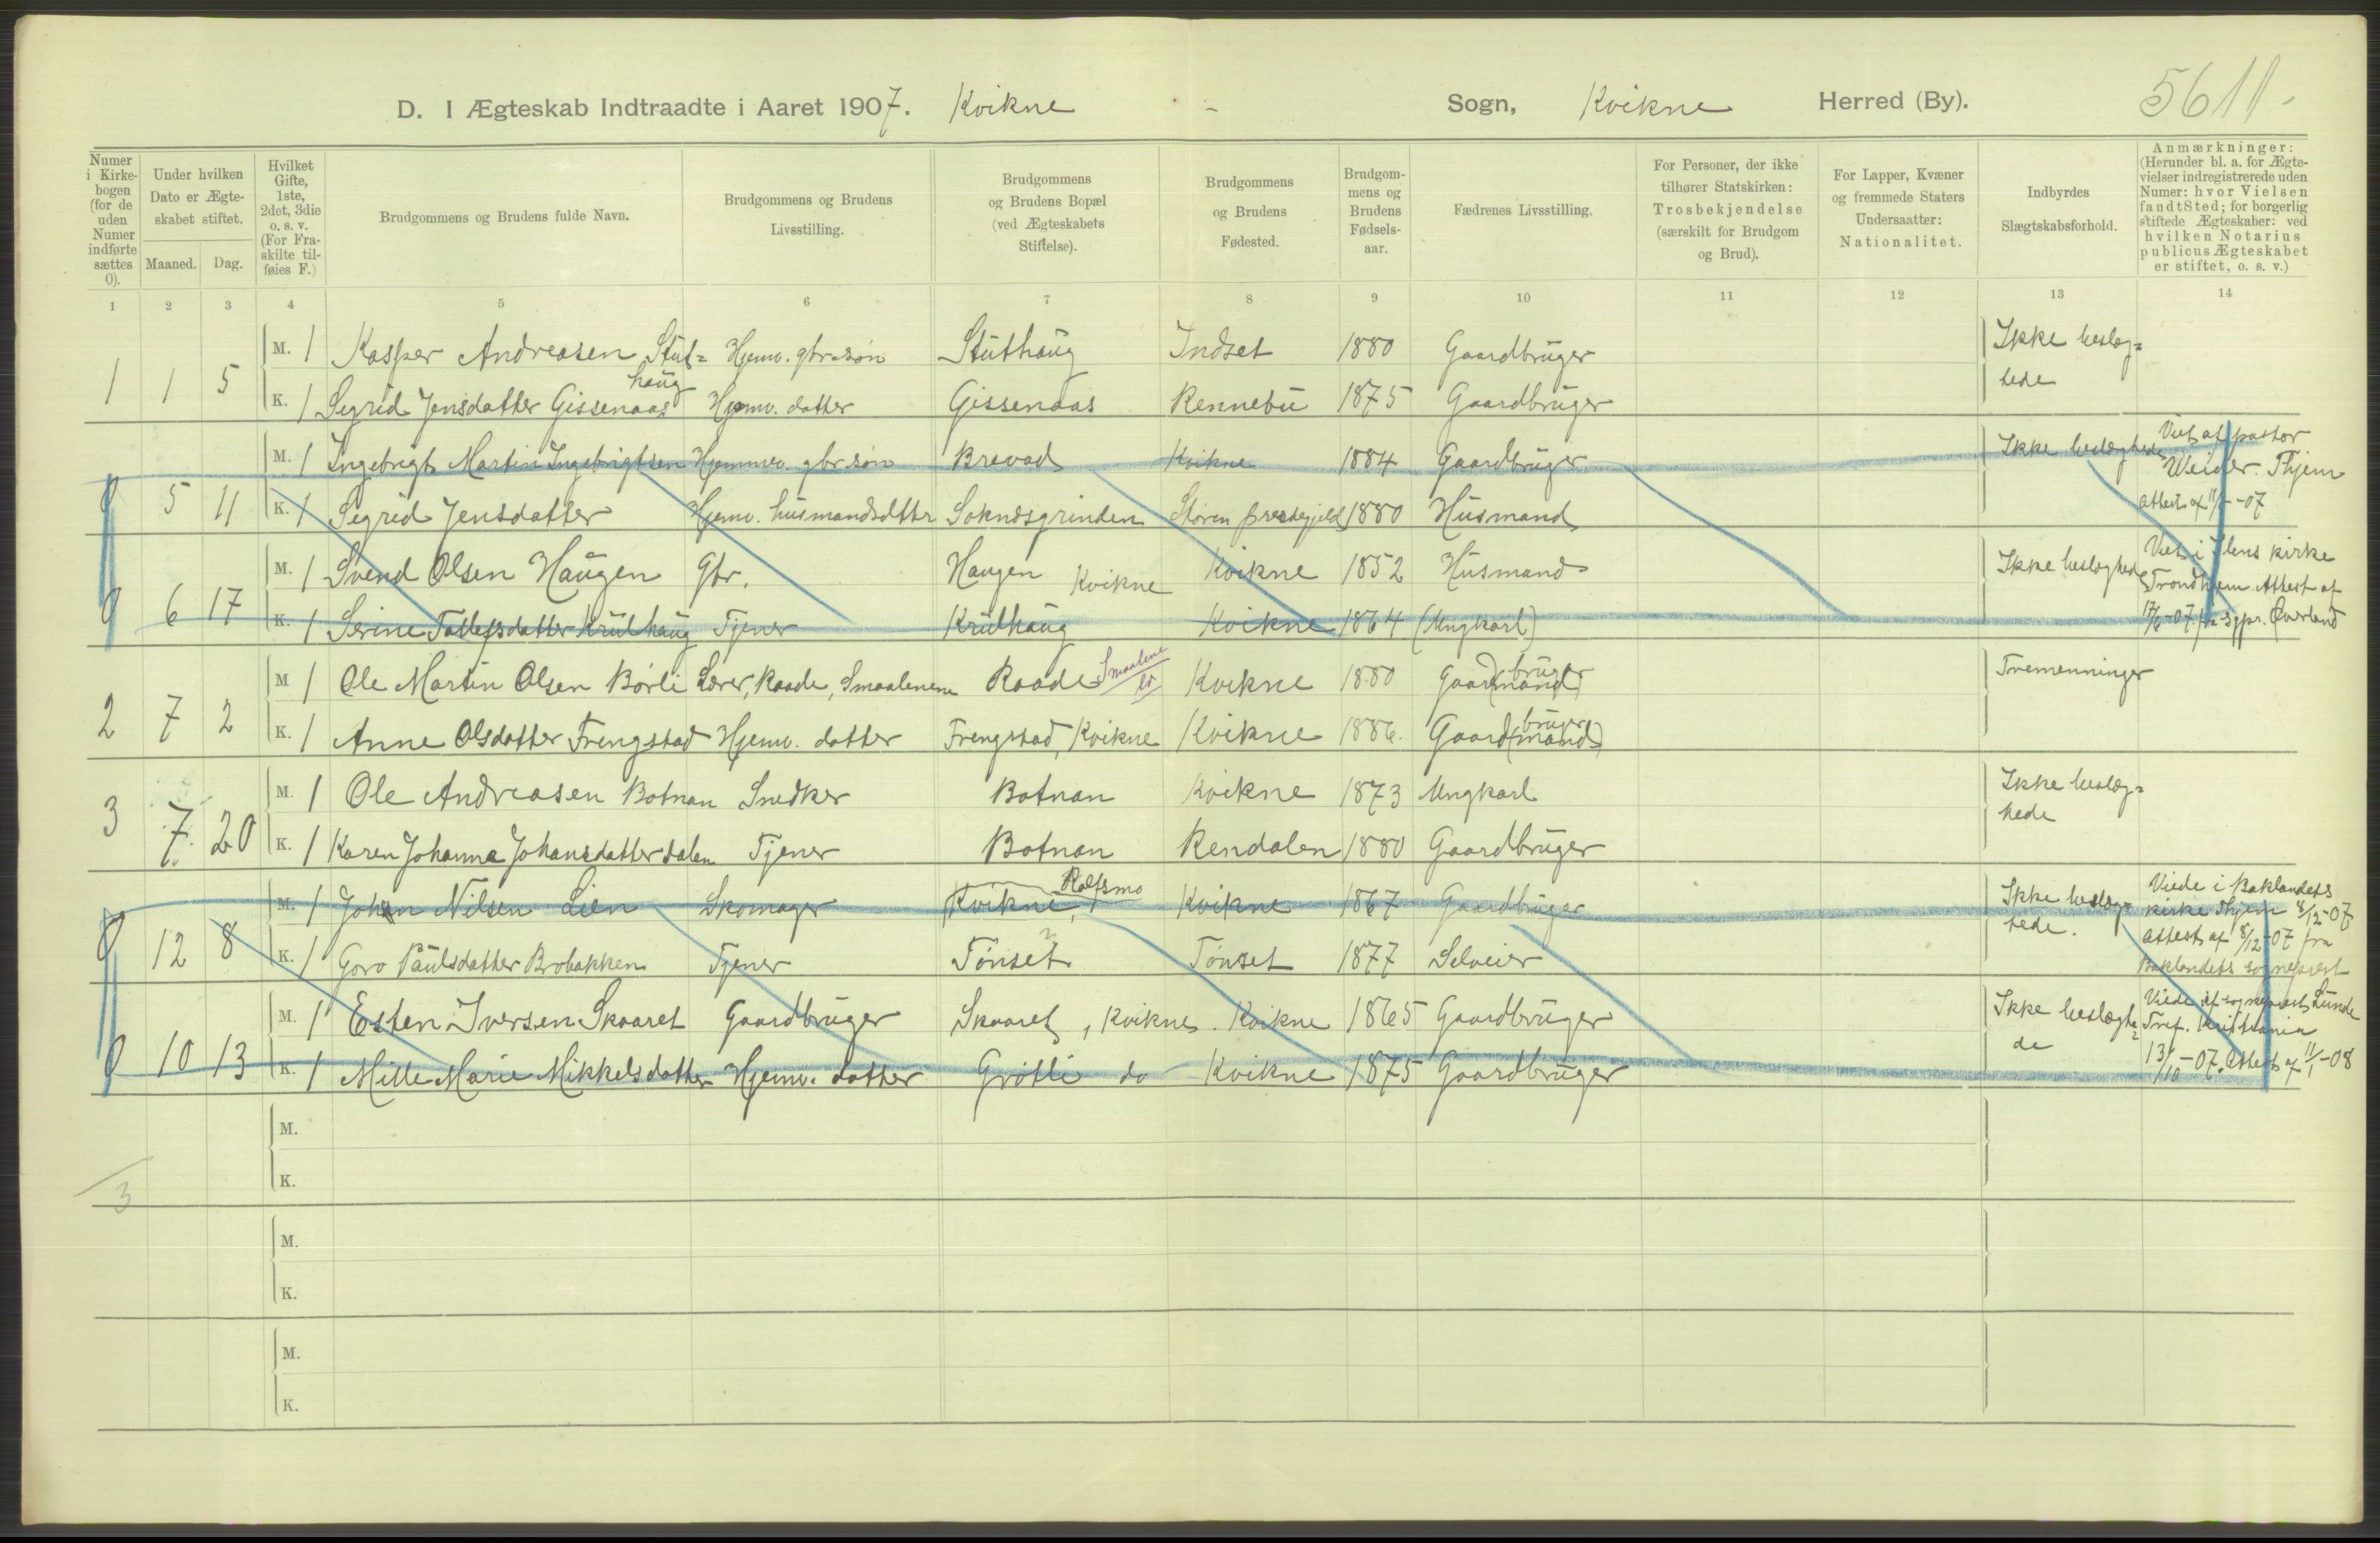 5611-
D. I Ægteskab Indtraadte i Aaret 1907. Kvikne - Sogn, Kvikne Herred (By).
Numer i Kirkebogen (for de uden Numer indførte sættes 0).
Under hvilken Dato er Ægteskabet stiftet.
Maaned. Dag.
Hvilket Gifte, 1ste, 2det, 3die o. s. v. (For Fraskilte tilføies F.)
Brudgommens og Brudens fulde Navn.
Brudgommens og Brudens Livsstilling.
Brudgommens og Brudens Bopæl (ved Ægteskabets Stiftelse).
Brudgommens og Brudens Fødested.
Brudgommens og Brudens Fødselsaar.
Fædrenes Livsstilling.
For Personer, der ikke tilhører Statskirken: Trosbekjendelse (særskilt for Brudgom og Brud).
For Lapper, Kvæner og fremmede Staters Undersaatter: Nationalitet.
Indbyrdes Slægtskabsforhold.
Anmærkninger: (Herunder bl. a. for Ægtevielser indregistrerede uden Numer: hvor Vielsen fandt Sted; for borgerlig stiftede Ægteskaber: ved hvilken Notarius publicus Ægteskabet er stiftet, o. s. v.)
1 2 3 4 5 6 7 8 9 10 11 12 13 14
M. 1 Kasper Andreasen Stut= Hjemv. gbr.søn Stuthaug Indset 1880 Gaardbruger Ikke beslæg=
haug
1 1 5 K. 1 Sigrid Jensdatter Gissenaas Hjemv. datter Gissenaas Rennebu 1875 Gaardbruger tede
M. 1 Ingebrigt Martin Ingebrigtsen Hjemmev. gbr søn Brevad Kvikne 1884 Gaardbruger Ikke beslægtede Viet af pastor
0 5 11 K. 1 Sigrid Jensdatter Hjemv. husmandsdttr Soknesgrinden Støren prestegjeld 1880 Husmand Thjem
attest af 11/5-07
M. 1 Svend Olsen Haugen Gbr. Haugen Kvikne Kvikne 1852 Husmand Ikke beslægtede Viet i Ilens kirke
Trondhjem Attest af
0 6 17 K. 1 Serine Tollefsdatter Krulhaug Tjener Krulhaug Kvikne 1864 (Ungkarl) 17/6-07 fra sgpr. Øverland
M 1 Ole Martin Olsen Børli Lærer, Raade, Smaalenene Raade Smaalene Kvikne 1880 Gaard(mand) bruger Tremenninger
2 7 2 K. 1 Anne Olsdatter Frengstad Hjemv. datter Frengstad, Kvikne Kvikne 1886. Gaard(mand) bruger
M. 1 Ole Andreasen Botnan Snedker Botnan Kvikne 1873 Ungkarl Ikke beslæg=
tede
3 7 20 K. 1 Karen Johanna Johansdatter Dalen Tjener Botnan Rendalen 1880 Gaardbruger
M. 1 Johan Nilsen Lien Skomager Kvikne, Rolfsmo Kvikne 1867 Gaardbruger Ikke beslæg= Viede i Baklandets
tede. kirke Thjem 8/12-07
0 12 8 K. 1 Goro Paulsdatter Brobakken Tjener Tönset Tönset 1877 Selveier attest af 8/12-07 fra
Baklandets sogneprest
M. 1 Esten Iversen Skaaret Gaardbruger Skaaret, Kvikne. Kvikne 1865 Gaardbruger Ikke beslægte= Viede af sogneprest Lunde
de Tref. Kristiania
0 10 13 K. 1 Mille Marie Mikkelsdatter Hjemv. datter Grötli do Kvikne 1875 Gaardbruger 13/10-07. Attest af 11/1-08
M.
K.
3
M.
K.
M.
K.